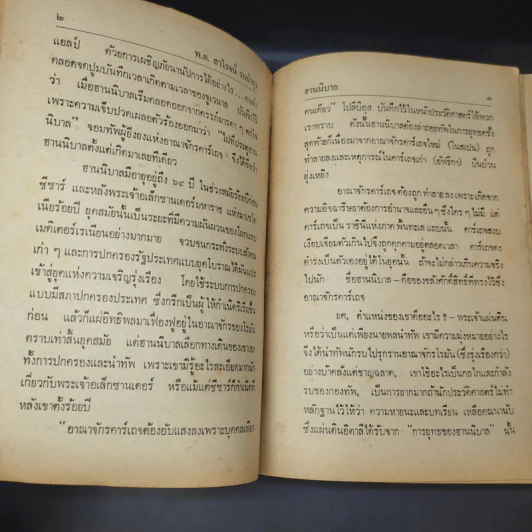 ๒
พ.ต. สาโรจน์
แอลป์ ด้วยการเผชิญภัยนานัปการได้อย่างไร
คลอดจดปูมบันทึกเวลาเกิดตามเวลาของจูเวนาล บันทึกไว้
ว่า เมื่อฮานนิบาลเริ่มคลอดออกจากครรภ์มารดา ๆ ตกใจ
เพราะความเจ็บปวดเผลอตัวร้องออกมาว่า
นิบาล” จอมทัพผู้ยิ่งยงแห่งอาณาจักรคาร์เถจ จึงได้ชื่อว่า
ฮานนิบาลตั้งแต่เกิดมาเลยทีเดียว
ฮานนิบาลมีอายุอยู่ถึง ๖๔ ปี ในช่วงสมัยร้อยปีก่อน
ซีซาร์ และหลังพระเจ้าอเล็กซานเดอร์มหาราช แห่งมาเซโด
เนียร้อยปี ยุคสมัยนั้นเป็นระยะที่มีความผันผวนของโลกแถบ
เมดิเตอร์เรเนียนอย่างมากมาย จวบจนกระทั่งระบบสังคม
เก่า ๆ และการปกครองรัฐประเทศแบบยุคโบราณได้ผันแปร
เข้าสู่ยุคแห่งความเจริญรุ่งเรือง โดยใช้ระบบการปกครอง
แบบมีสภาปกครองประเทศ ซึ่งกรีกเป็นผู้ให้กำเนิดริเริ่มขึ้น
ก่อน แล้วก็แผ่อิทธิพลมาเฟื่องฟูอยู่ในอาณาจักรของโรมัน
ตราบเท่าสิ้นยุคสมัย แต่ฮานนิบาลเลือกทางเดินของเขาเอง
ทั้งการปกครองและนำทัพ เพราะเขามีรู้อะไรละเอียดมากนัก
เกี่ยวกับพระเจ้าอเล็กซานเดอร์ หรือแม้แต่ซีซาร์ก็กำเนิดที
หลังเขาตั้งร้อยปี
“อาณาจักรคาร์เถจต้องอับแสงลงเพราะบุคคลเพียง
ฮานนิบาล
๓
คนเดียว” โปลิบิอุส บันทึกไว้ในหน้าประวัติศาสตร์ให้พวก
เราทราบ ดังนั้นฮานนิบาลต้องล่าถอยทัพในการยุทธครั้ง
สุดท้ายก็เนื่องมาจากอาณาจักรคาร์เถจใหม่ (ในสเปน) ถูก
ทำลายลงและเหตุการณ์ในคาร์เถจเก่า (อัฟริกา) ปั่นป่วน
ยุ่งเหยิง
อาณาจักรคาร์เถจต้องถูกทำลายลงเพราะเกิดจาก
ความอิจฉาริษยาต้องการอำนาจและอื่น ๆ ซึ่งใคร ๆ ไม่มี แต่
คาร์เถจเป็นราชินีแห่งภาคพื้นทะเลแถบนั้น คาร์เถจสงบ
เรียบเจียมตัวเกินไปจึงถูกคุกคามอยู่ตลอดเวลา คาร์เถจคง
ดำรงเป็นตัวเองอยู่ได้ในยุคนั้น ถ้าจะไม่กล่าวเกินความจริง
ไปนัก ชื่อฮานนิบาล – คือของขลังศักดิ์สิทธิ์ที่ทรงไว้ซึ่ง
อาณาจักรคาร์เถจ
ยศ, ตำแหน่งของเขาคืออะไร ? – พระเจ้าแผ่นดิน
หรือว่าเป็นแต่เพียงนายพลนำทัพ เขามีความมุ่งหมายอย่างไร
จึงได้นำทัพนักรบไปรุกรานอาณาจักรโรมัน (ซึ่งรุ่งเรืองกว่า)
อย่างบ้าคลั่งแต่ชาญฉลาด, เขาใช้อะไรเป็นกลไกและกำลัง
รบของกองทัพ, เป็นการยากมากถ้านักประวัติศาสตร์ไม่ทำ
หลักฐานไว้ให้ว่า ความหายนะและบทเรียน เหลือคณนานับ
ซึ่งแผ่นดินอิตาลีได้รับจาก “การยุทธของฮานนิบาล” นั้น